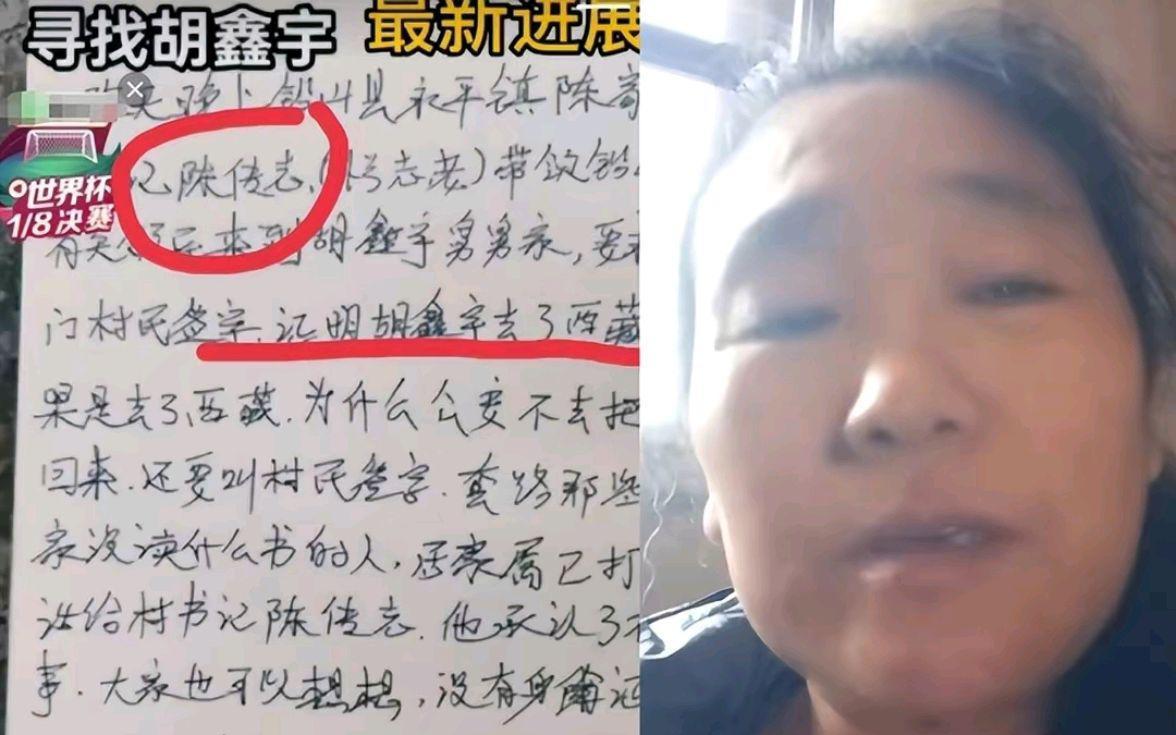 寻找胡鑫宇 最新进展
昨天晚上铅山县永平镇陈家
记陈传志,(号志老)带领铅
来到胡鑫宇舅舅家,要
世界杯
1/8决赛
门村民签字.证明胡鑫宇去了西藏
果是去了西藏.为什么公安不去把
回来.还要叫村民签字.套路那些
家没读什么书的人,居家属已打
话给村书记陈传志.他承认了
事.大家也可以想想,没有身